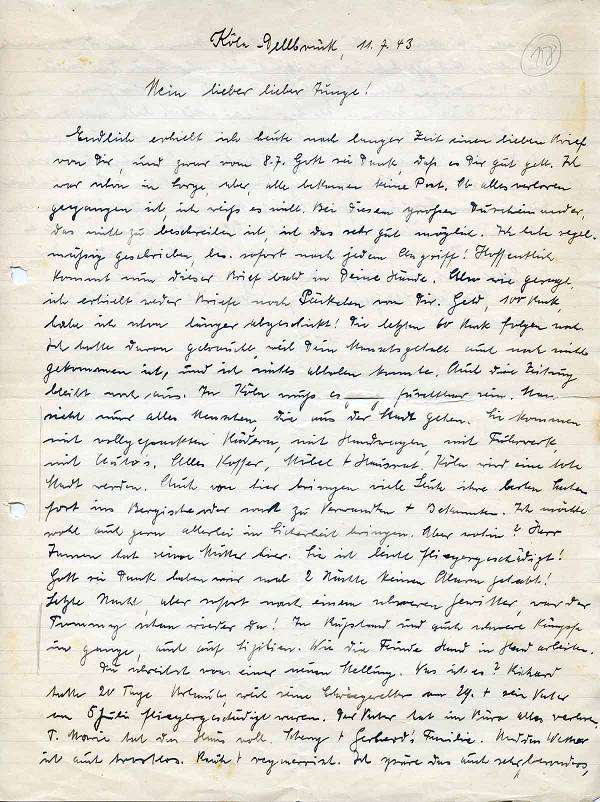 Köln-Dellbrück, 11.7.43
118
Mein lieber lieber Junge!
Endlich erhielt ich heute nach langer Zeit einen lieben Brief
von Dir, und zwar vom 8.7. Gott sei Dank, daß es Dir gut geht. Ich
war schon in Sorge, aber, alle bekamen keine Post. Ob alles verloren
gegangen ist, ich weiß es nicht. Bei diesem großen Durcheinander,
das nicht zu beschreiben ist, ist das sehr gut möglich. Ich habe regel-
mäßig geschrieben, bes. sofort nach jedem Angriff! Hoffentlich
kommt nun dieser Brief bald in Deine Hände. Also wie gesagt,
ich erhielt weder Briefe noch Päckchen von Dir. Geld, 100 Mark,
habe ich schon länger abgeschickt! Die letzten 60 Mark folgen noch.
Ich hatte davon gebraucht, weil Dein Monatsgehalt auch noch nicht
gekommen ist, und ich nichts abholen konnte. Auch die Zeitung
bleibt noch aus. In Köln muß es furchtbar sein. Man
sieht nur alles Menschen, die aus der Stadt gehen. Sie kommen
mit vollgepackten Rädern, mit Handwagen, mit Fuhrwerk,
mit Auto's. Alles Koffer, Möbel + Hausrat. Köln wird eine tote
Stadt werden. Auch von hier bringen viele Leute ihre besten Sachen
fort ins Bergische oder nach zu Verwandten + Bekannten. Ich möchte
wohl auch gern allerlei in Sicherheit bringen. Aber wohin? Herr
hat seine Mutter hier. Sie ist leicht fliegergeschädigt!
Gott sei Dank haben wir mal 2 Nächte keinen Alarm gehabt!
Letzte Nacht, aber sofort nach einem schweren Gewitter, war der
Tommy schon wieder da! In Rußland sind auch schwere Kämpfe
im gange, auch auf Sizilien. Wie die Feinde Hand in Hand arbeiten.
Du schreibst von einer neuen Stellung. Was ist es? Richard
hatte 20 Tage Urlaub, weil seine Schwiegereltern am 29. + sein Vater
am 5 Juli fliegergeschädigt waren. Der Vater hat im Büro alles verloren.
T. Marie hat das Haus voll. + Gerhard's Familie. Und das Wetter
ist auch trostlos. Rauh + regnerisch. Ich spüre das auch sehr besonders,